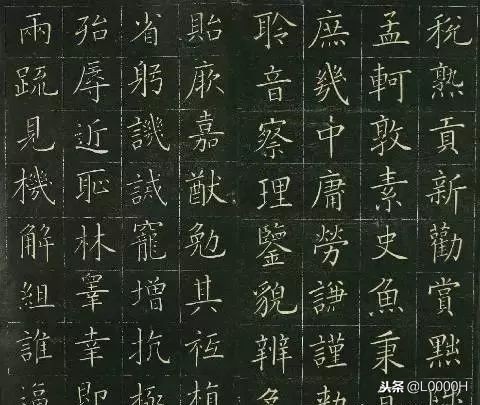 稅熟貢新勸賞黜陟
孟軻敦素史魚秉直
庶幾中庸勞謙謹勅
聆音察理鑒貌辨色
貽厥嘉猷勉其祗植
省躬譏誡寵增抗極
殆辱近恥林睪幸即
兩疏見機解組誰逼
头条 @L0000H